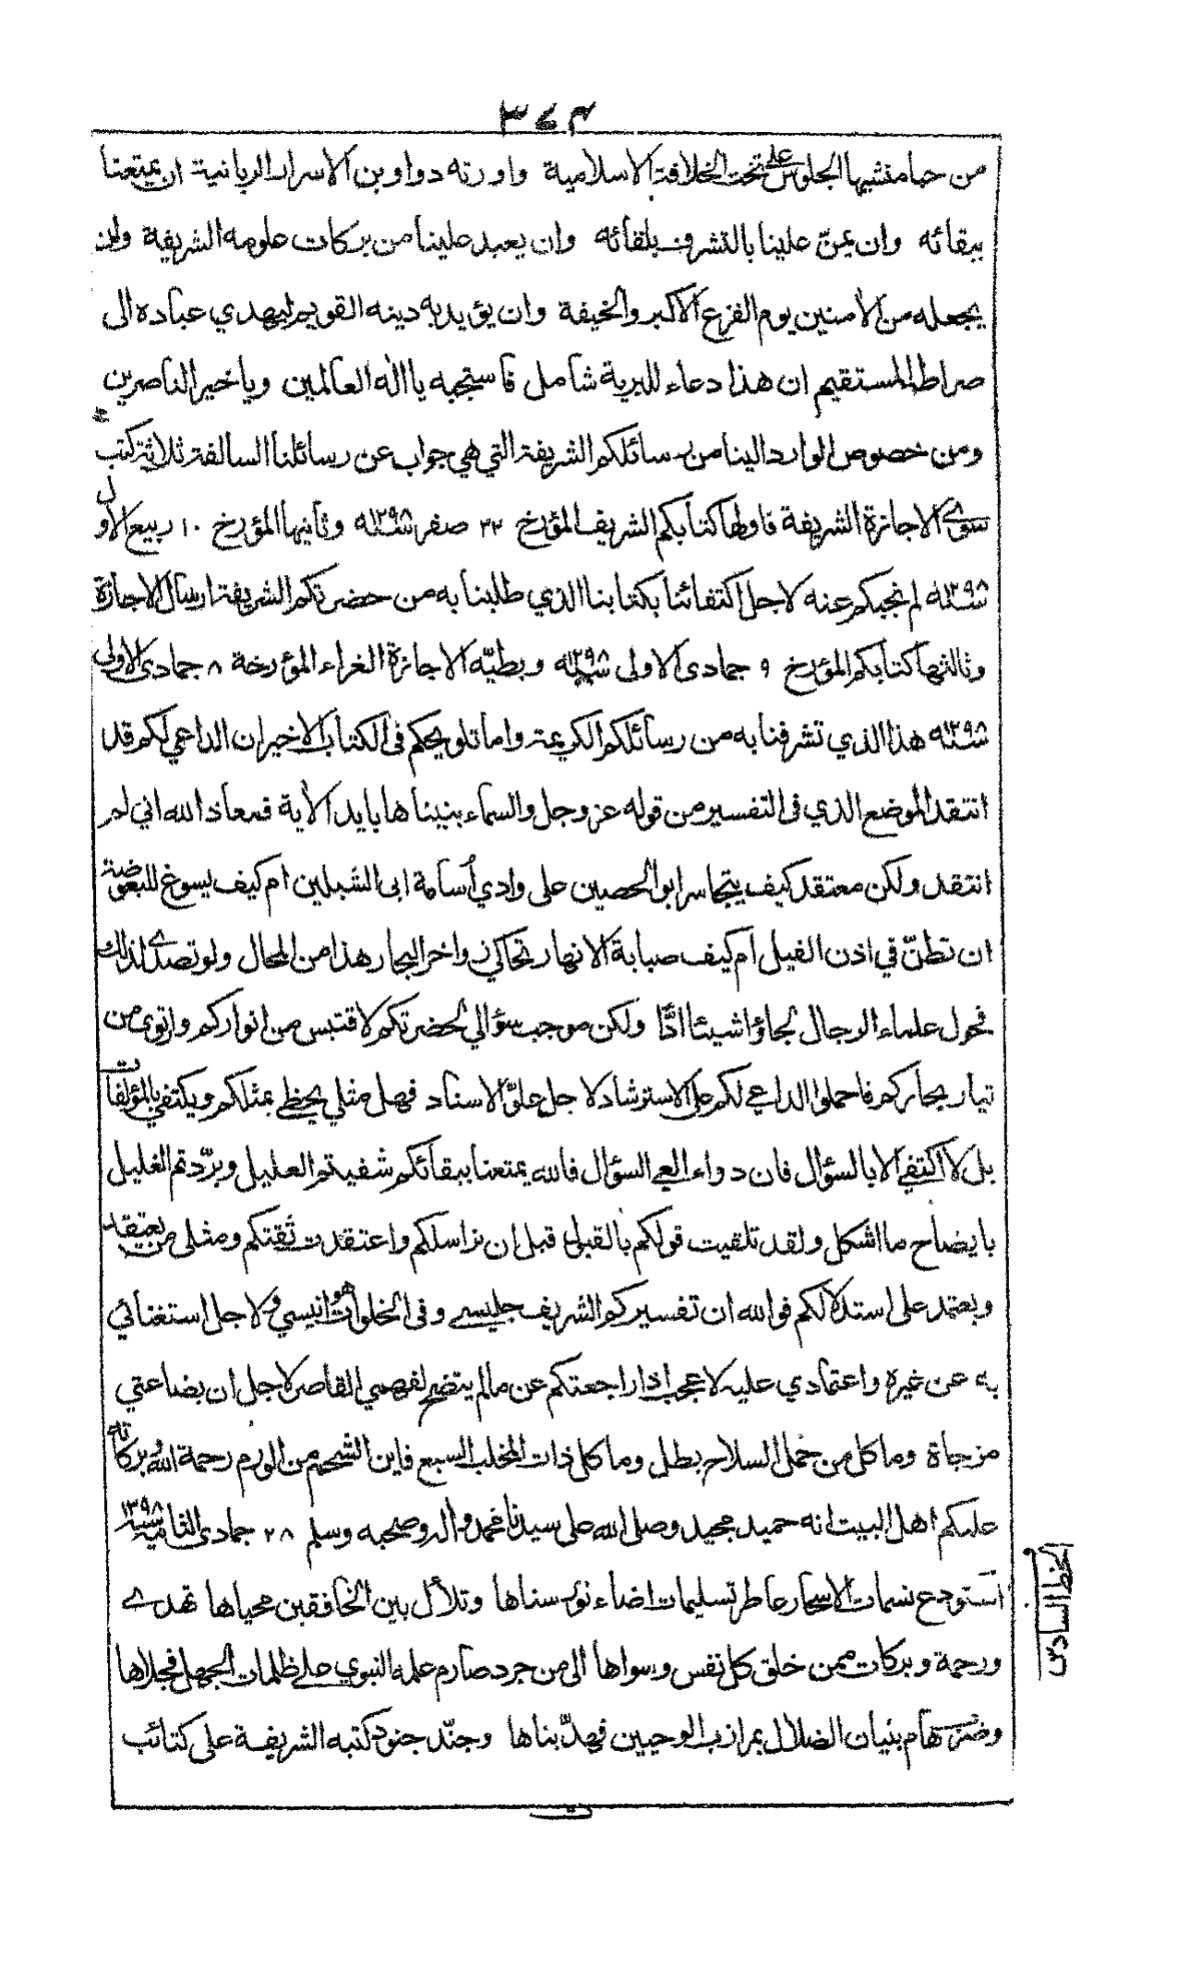 ٣٧٤
من حبا منشيها الجلوس على تخت الخلافة الاسلامية واورثه دواوين الاسرار الربانية ان يمتعنا
ببقائه وان يمنّ علينا بالتشرف بلقائه وان يعيد علينا من بركات علومه الشريفة وان
يجعله من الأمنين يوم الفزع الاكبر والخيفة وان يؤيد به دينه القويم ليهدي عباده الى
صراط المستقيم ان هذا دعاء للبرية شامل فاستجبه يا اله العالمين ويا خير الناصرين
ومن خصوص الوارد الينا من رسائلكم الشريفة التي هي جواب عن رسائلنا السالفة ثلاثة كتب
سوى الاجازة الشريفة فاولها كتابكم الشريف المؤرخ ٢٢ صفر سنه ١٢٩٨ وثانيها المؤرخ ١٠ ربيع الاول
سنه ١٢٩٨ لم نجبكم عنه لاجل اكتفائنا بكتابنا الذي طلبنا به من حضرتكم الشريفة ارسال الاجازة
وثالثها كتابكم المؤرخ ٩ جمادى الاولى سنه ١٢٩٨ وبطيّه الاجازة الغراء المؤرخة ٨ جمادى الاولى
سنه ١٢٩٨ هذا الذي تشرفنا به من رسائلكم الكريمة واما تلويحكم فى الكتاب الاخير ان الداعي لكم قد
انتقد الموضع الذي فى التفسير من قوله عز وجل والسماء بنيناها بايد الأية فمعاذ الله اني لم
انتقد ولكن معتقد كيف يتجاسر ابو الحصين على وادي أسامة ابى الشبلين ام كيف يسوغ للبعوضة
ان تطنّ في اذن الفيل ام كيف صبابة الانهار تحاكي زواخر البحار هذا من المحال ولو تصدى لذلك
فحول علماء الرجال لجاؤا شيئا ادًّا ولكن موجب سؤالي لحضرتكم لاقتبس من انواركم وارتوى من
تيار بحاركم فاحملوا الداعي لكم على الاسترشاد لاجل علوّ الاسناد فهل مثلي يحظى بمثلكم ويكتفي بالمؤلفات
بل لا اكتفي الا بالسؤال فان دواء العي السؤال فالله يمتعنا ببقائكم شفيتم العليل وبرّدتم الغليل
بايضاح ما اشكل ولقد تلقيت قولكم بالقبول قبل ان نراسلكم واعتقدت ثقتكم ومثلى من يعتقد
ويعتمد على استدلالكم فوالله ان تفسيركم الشريف جليسي وفى الخلوات هو انيسي ولاجل استغنائي
به عن غيره واعتمادي عليه لا عجب اذا راجعتكم عن ما لم يتضح لفهمي القاصر لاجل ان بضاعتي
مزجاة وما كل من حمل السلاح بطل وما كل ذات المخلب السبع فاين الشحم من الورم رحمة الله وبركاته
عليكم اهل البيت انه حميد مجيد وصلى الله على سيدنا محمد واله وصحبه وسلم ٢٨ جمادى الثانية سنة ١٢٩٨
الخط السادس
استودع نسمات الاسحار عاطر تسليمات اضاء نور سناها وتلأل بين الخافقين محياها تهدى
ورحمة وبركات ممن خلق كل نفس وسواها الى من جرد صارم علمه النبوي على ظلمات الجهل فجلاها
وضرب هام بنيان الضلال بمرازب الوحيين فهدّ بناها وجنّد جنود كتبه الشريفة على كتائب